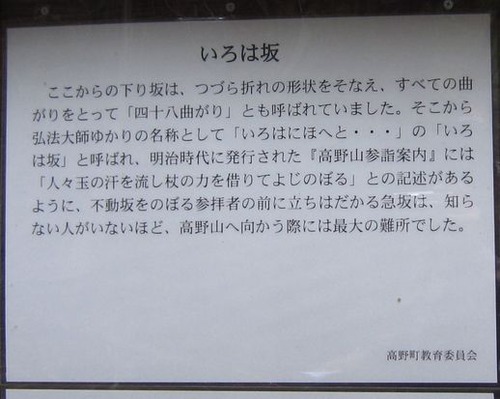 いろは坂
　ここからの下り坂は、つづら折れの形状をそなえ、すべての曲
がりをとって「四十八曲がり」とも呼ばれていました。そこから
弘法大師ゆかりの名称として「いろはにほへと・・・」の「いろ
は坂」と呼ばれ、明治時代に発行された『高野山参詣案内』には
「人々玉の汗を流し杖の力を借りてよじのぼる」との記述がある
ように、不動坂をのぼる参拝者の前に立ちはだかる急坂は、知ら
ない人がいないほど、高野山へ向かう際には最大の難所でした。
高野町教育委員会